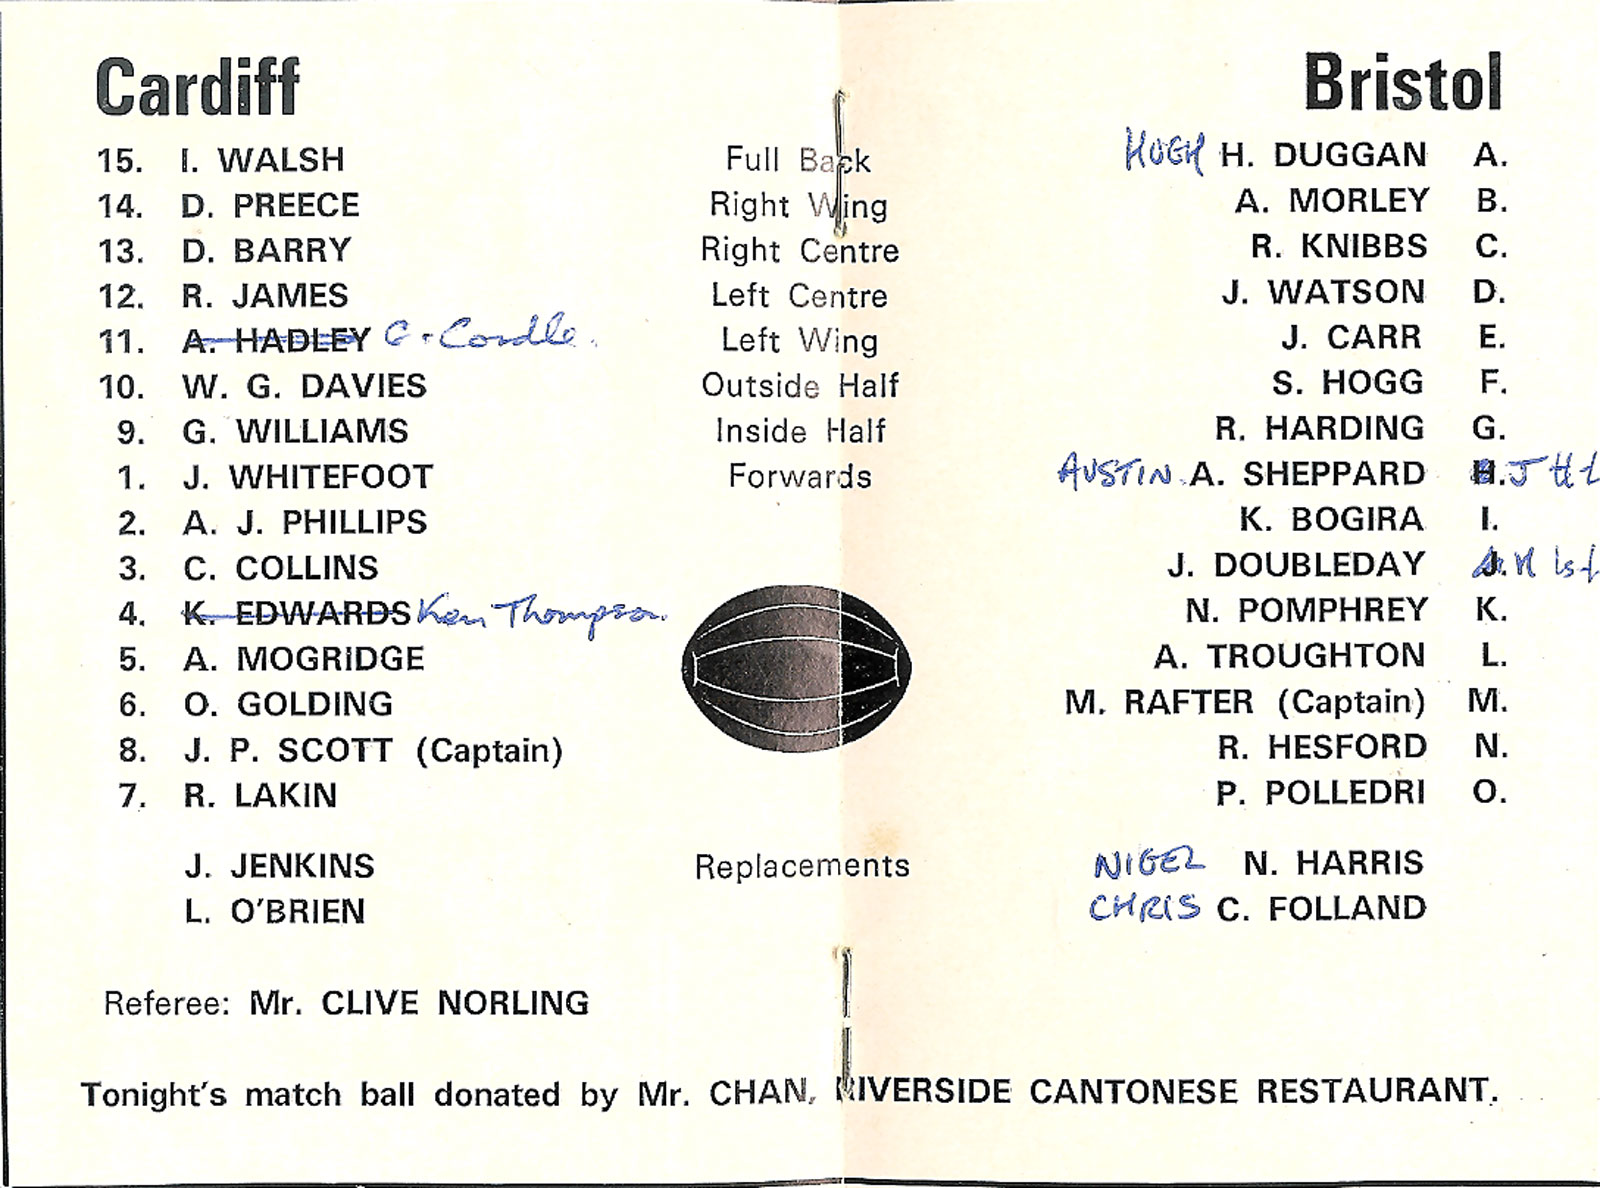 Cardiff Bristol
15. I. WALSH Full Back HUGH H. DUGGAN A.
14. D. PREECE Right Wing A. MORLEY B.
13. D. BARRY Right Centre R. KNIBBS C.
12. R. JAMES Left Centre J. WATSON D.
11. A. HADLEY C. Cordle. Left Wing J. CARR E.
10. W. G. DAVIES Outside Half S. HOGG F.
9. G. WILLIAMS Inside Half R. HARDING G.
1. J. WHITEFOOT Forwards AUSTIN A. SHEPPARD H. J
2. A. J. PHILLIPS K. BOGIRA I.
3. C. COLLINS J. DOUBLEDAY J. H
4. K. EDWARDS Ken Thompson. N. POMPHREY K.
5. A. MOGRIDGE A. TROUGHTON L.
6. O. GOLDING M. RAFTER (Captain) M.
8. J. P. SCOTT (Captain) R. HESFORD N.
7. R. LAKIN P. POLLEDRI O.
J. JENKINS Replacements NIGEL N. HARRIS
L. O'BRIEN CHRIS C. FOLLAND
Referee: Mr. CLIVE NORLING
Tonight's match ball donated by Mr. CHAN, RIVERSIDE CANTONESE RESTAURANT.